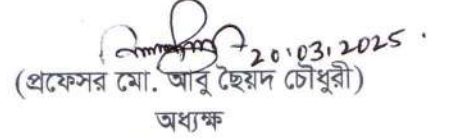 20.03.2025.
(প্রফেসর মো. আবু ছৈয়দ চৌধুরী)
অধ্যক্ষ